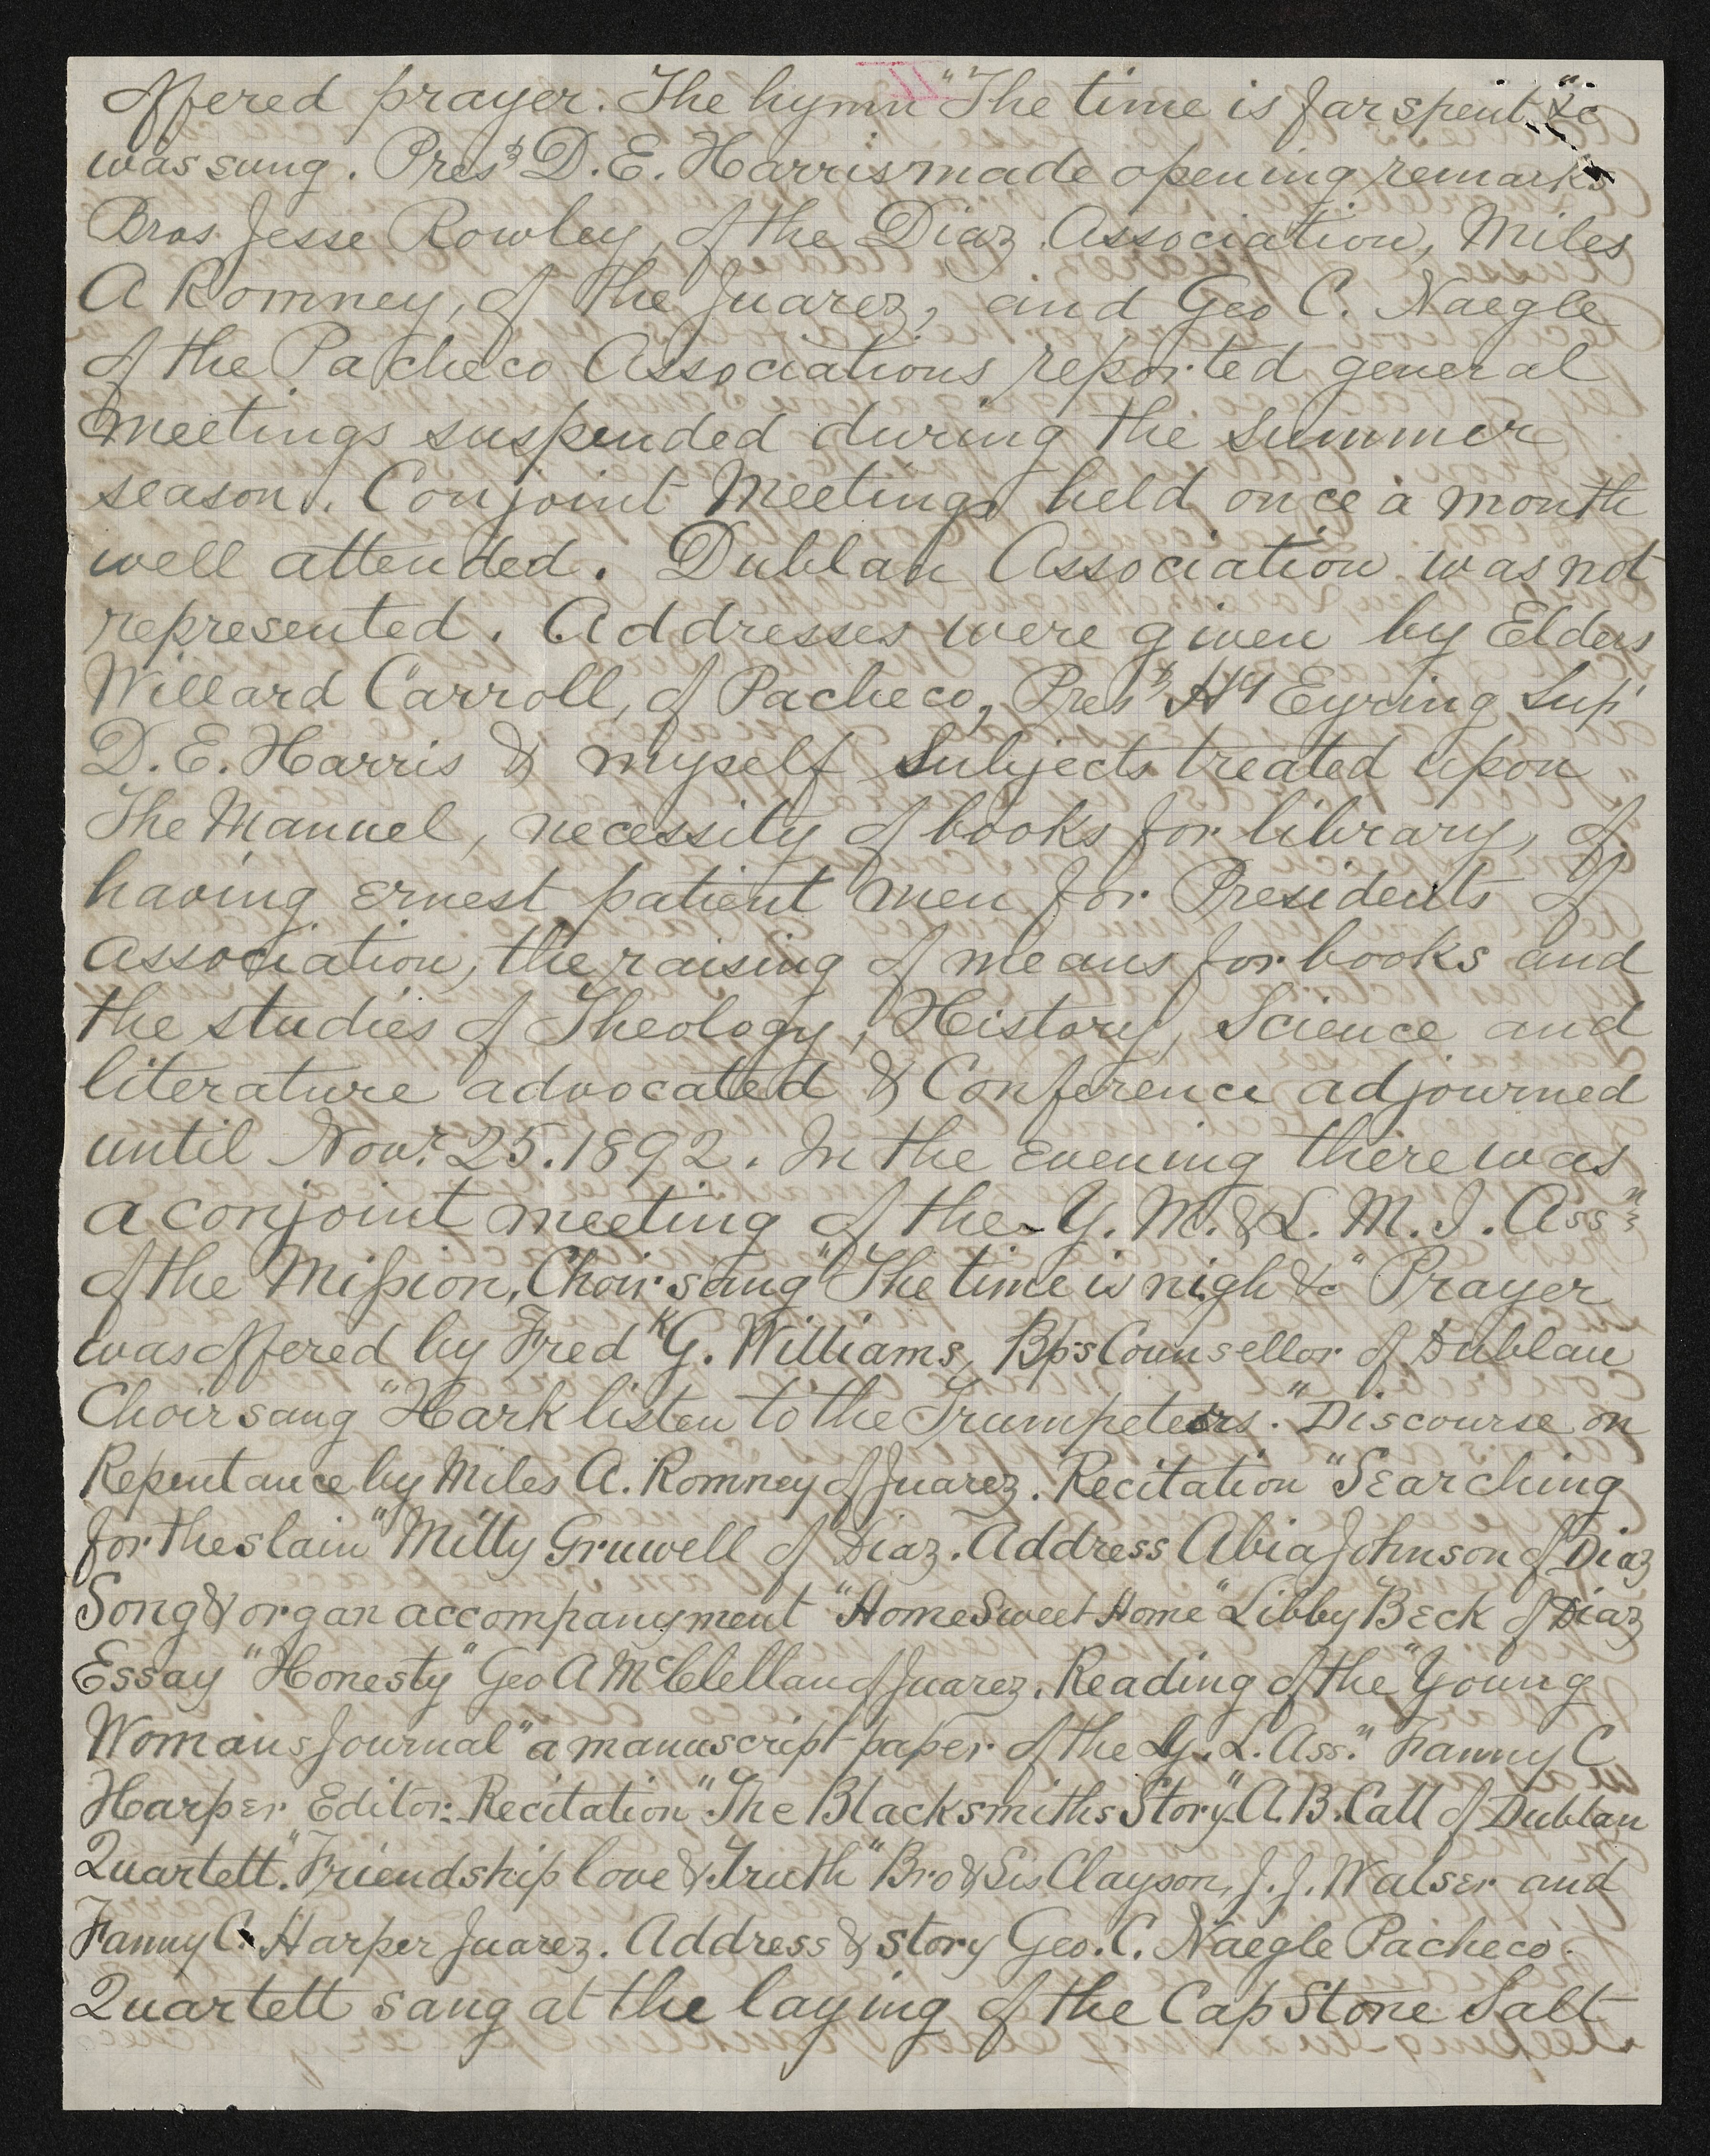 offered prayer. The hymn "The time is far spent &c"
was sung. Prest D. E. Harris made opening remarks
Bros. Jesse Rowley, of the Diaz Association, Miles
A Romney, of the Juarez, and Geo C. Naegle
of the Pacheco Associations reported general
meetings suspended during the summer
season. Conjoint Meetings held once a month
well attended. Dublan Association was not
represented. Addresses were given by Elders
Willard Carroll, of Pacheco, Prest Hy Eyring Supt
D. E. Harris & myself Subjects treated upon
The Manuel, necessity of books for library, of
having ernest patient men for Presidents of
Association, the raising of means for books and
the studies of Theology, History, Science and
literature advocated & Conference adjourned
until Novr 25. 1892. In the evening there was
a conjoint meeting of the Y. M. & L. M. I. Assns
of the Mission, Choir sang "The time is nigh &c" Prayer
was offered by Fredk G. Williams, Bps Counsellor of Dublan
Choir sang "Hark listen to the Trumpeters." Discourse on
Repentance by Miles A. Romney of Juarez. Recitation "Searching
for the slain" Milly Gruwell of Diaz. Address Abia Johnson of Diaz
Song & organ accompanyment "Home Sweet Home" Libby Beck of Diaz
Essay "Honesty" Geo A McClellan of Juarez. Reading of the "Young
Womans Journal" a manuscript paper of the Y. L. Ass." Fanny C
Harper Editor. Recitation "The Blacksmiths Story" A. B. Call of Dublan
Quartett. "Friendship love & Truth" Bro & Sis Clayson, J. J. Walser and
Fanny C. Harper Juarez. Address & story Geo. C. Naegle Pacheco.
Quartett sang at the laying of the Cap Stone Salt